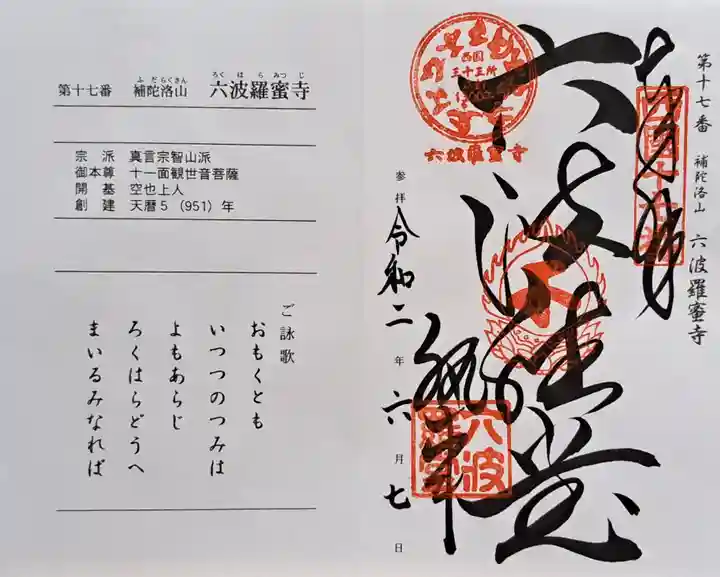 第十七番 補陀洛山 六波羅蜜寺
ふだらくさん ろくはらみつじ
宗派 真言宗智山派
御本尊 十一面観世音菩薩
開基 空也上人
創建 天暦5（951）年
ご詠歌
おもくとも
いつつのつみは
よもあらじ
ろくはらどうへ
まいるみなれば
第十七番 補陀洛山 六波羅蜜寺
西国
三十三所
六波羅蜜寺
六波羅蜜寺
参拝 令和二年六月七日